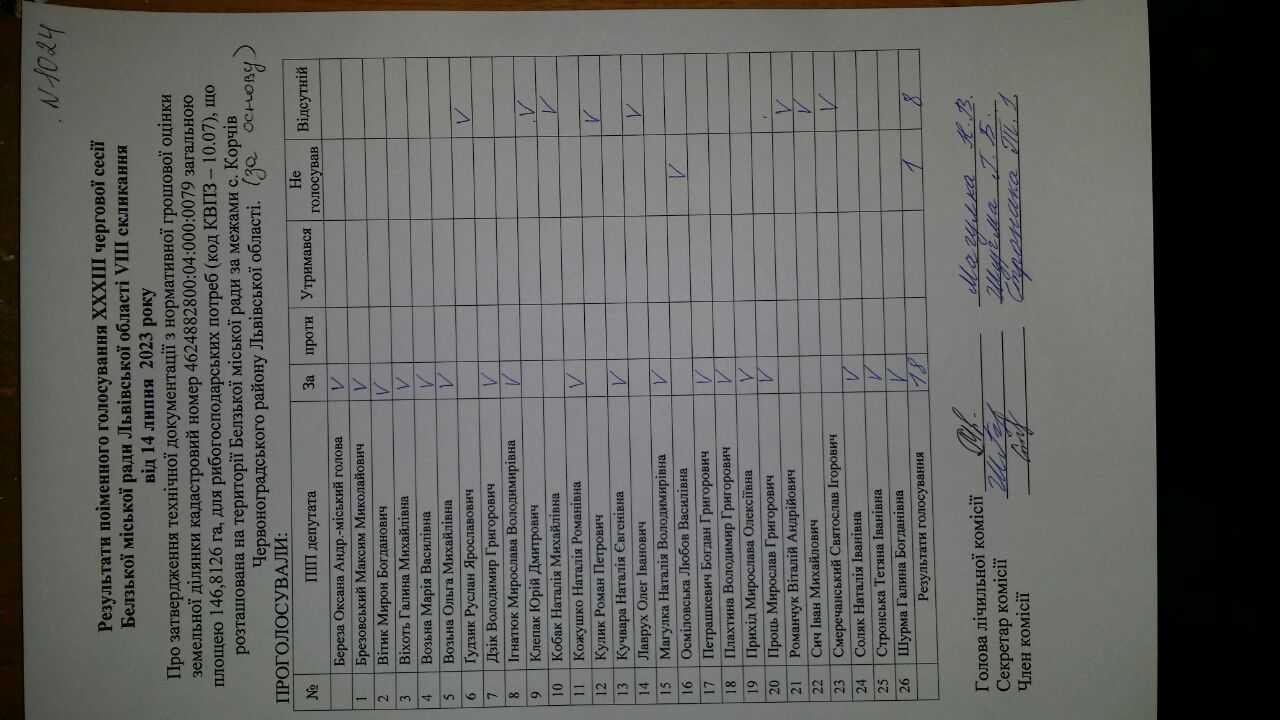 N 1024
Результати поіменного голосування XXXIII чергової сесії
Белзької міської ради Львівської області VIII скликання
від 14 липня 2023 року
Про затвердження технічної документації з нормативної грошової оцінки
земельної ділянки кадастровий номер 4624882800:04:000:0079 загальною
площею 146,8126 га, для рибогосподарських потреб (код КВПЗ – 10.07), що
розташована на території Белзької міської ради за межами с. Корчів
Червоноградського району Львівської області. (за основу)
ПРОГОЛОСУВАЛИ:
№ ПІП депутата За проти Утримався Не голосував Відсутній
Береза Оксана Андр.-міський голова V
1 Брезовський Максим Миколайович V
2 Вітик Мирон Богданович V
3 Віхоть Галина Михайлівна V
4 Возьна Марія Василівна V
5 Возьна Ольга Михайлівна V
6 Гудзик Руслан Ярославович V
7 Дзік Володимир Григорович V
8 Ігнатюк Мирослава Володимирівна V
9 Клепак Юрій Дмитрович V
10 Кобак Наталія Михайлівна V
11 Кожушко Наталія Романівна V
12 Кулик Роман Петрович V
13 Кучвара Наталія Євгенівна V
14 Лаврух Олег Іванович V
15 Магулка Наталія Володимирівна V
16 Осміловська Любов Василівна V
17 Петрашкевич Богдан Григорович V
18 Плахтина Володимир Григорович V
19 Прихід Мирослава Олексіївна V
20 Проць Мирослав Григорович V
21 Романчук Віталій Андрійович V
22 Сич Іван Михайлович V
23 Смеречанський Святослав Ігорович V
24 Соляк Наталія Іванівна V
25 Стронська Тетяна Іванівна V
26 Шурма Галина Богданівна V
Результати голосування 18 1 8
Голова лічильної комісії Магулка Н.В.
Секретар комісії Шурма Г.Б.
Член комісії Стронська Т.І